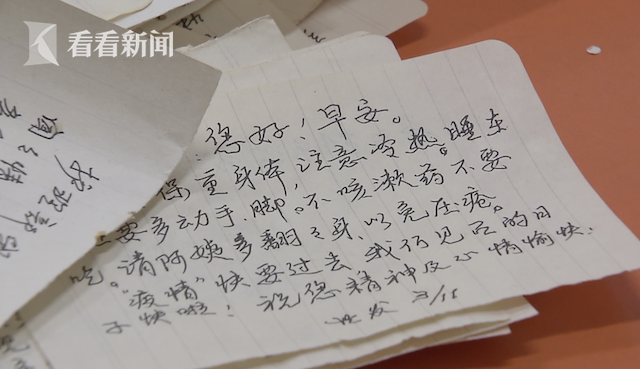 看看新闻
：您好！早安。
保重身体，注意冷热。睡在
上要多动手、脚。不咳漱药不要
吃。请阿姨多翻々身，以免压疮。
“疫情”快要过去 我们见面的日
子快啦！祝您精神及心情愉快．